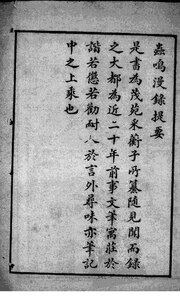 蟲鳴漫錄提要
是書為茂苑采蘅子所纂隨見聞而錄
之大都為近二十年前事文筆寓莊於
諧若懲若勸耐人於言外尋味亦筆記
中之上乘也